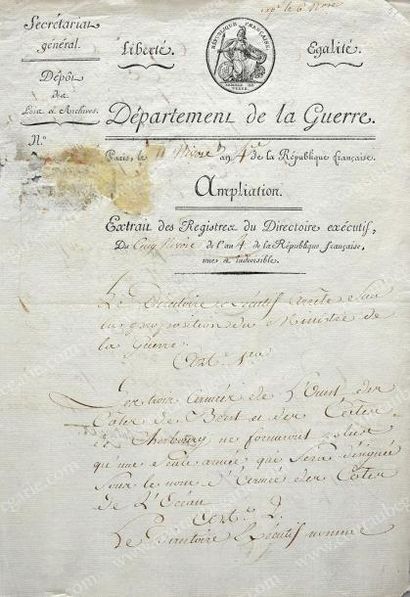 Secrétariat
général.
Dépôt
des
Loix et Archives.
N.º
Liberté.
RÉPUBLIQUE FRANÇAISE.
Egalité.
Département de la Guerre.
Paris, le 11 Nivose an 4e de la République française.
Ampliation.
Extrait des Registres du Directoire exécutif,
Du Cinq Nivose de l'an 4 de la République française,
une et indivisible.
Le Directoire Exécutif arrête sur
la proposition du Ministre de
la Guerre.
Art. 1er
Les trois armées de L'Ouest des
Côtes de Brest et des Côtes
de Cherbourg ne formeront plus
qu'une seule armée qui sera désignée
sous le nom d'Armée des Côtes
de L'Océan
Art. 2.
Le Directoire Exécutif nomme